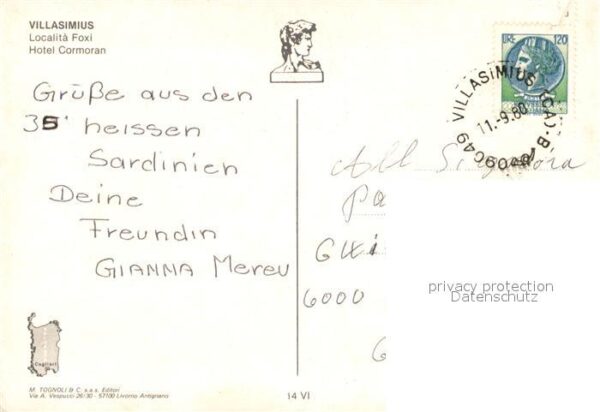 VILLASIMIUS
Località Foxi
Hotel Cormoran
LIRE 120
90049 VILLASIMIUS (CA)·B
11.-9.80
Grüße aus den
35' heissen
Sardinien
Deine
Freundin
GIANNA Mereu
All
6000
privacy protection
Datenschutz
Cagliari
M. TOGNOLI & C. s.a.s. Editori
Via A. Vespucci 26/30 - 57100 Livorno Antignano
14 VI